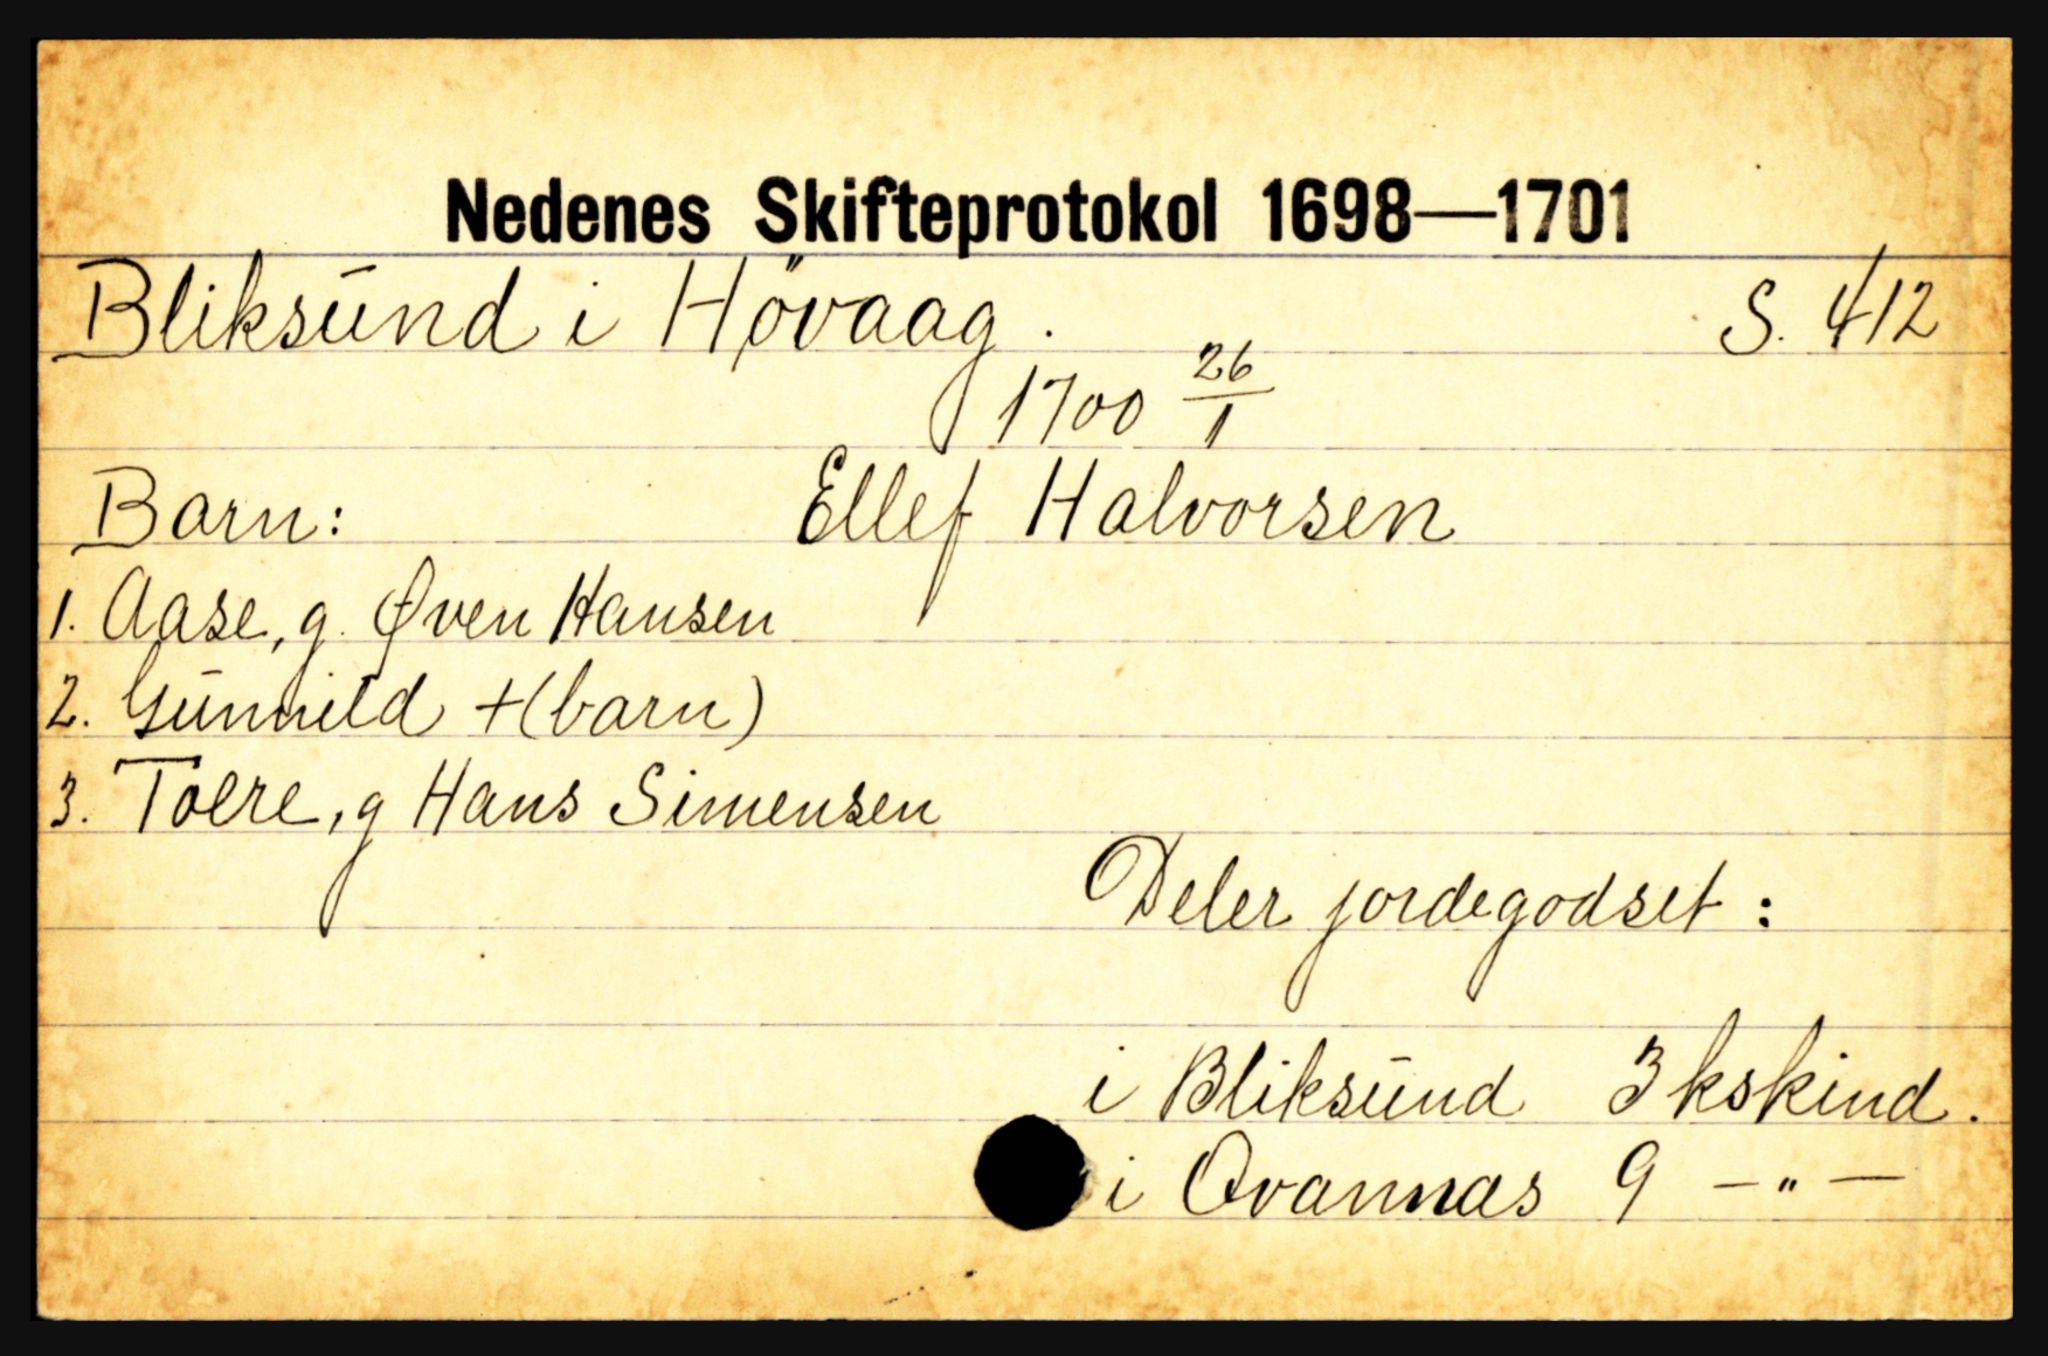 Nedenes Skifteprotokol 1698—1701
Bliksund i Hövaag. S. 412
1700 26/1
Barn: Ellef Halvorsen
1. Aase, g. Øven Hansen
2. Gunnild +(barn)
3. Tolre, g Hans Simensen
Deler jordegodset:
i Bliksund 3 kskind.
i Qvannas 9 —"—